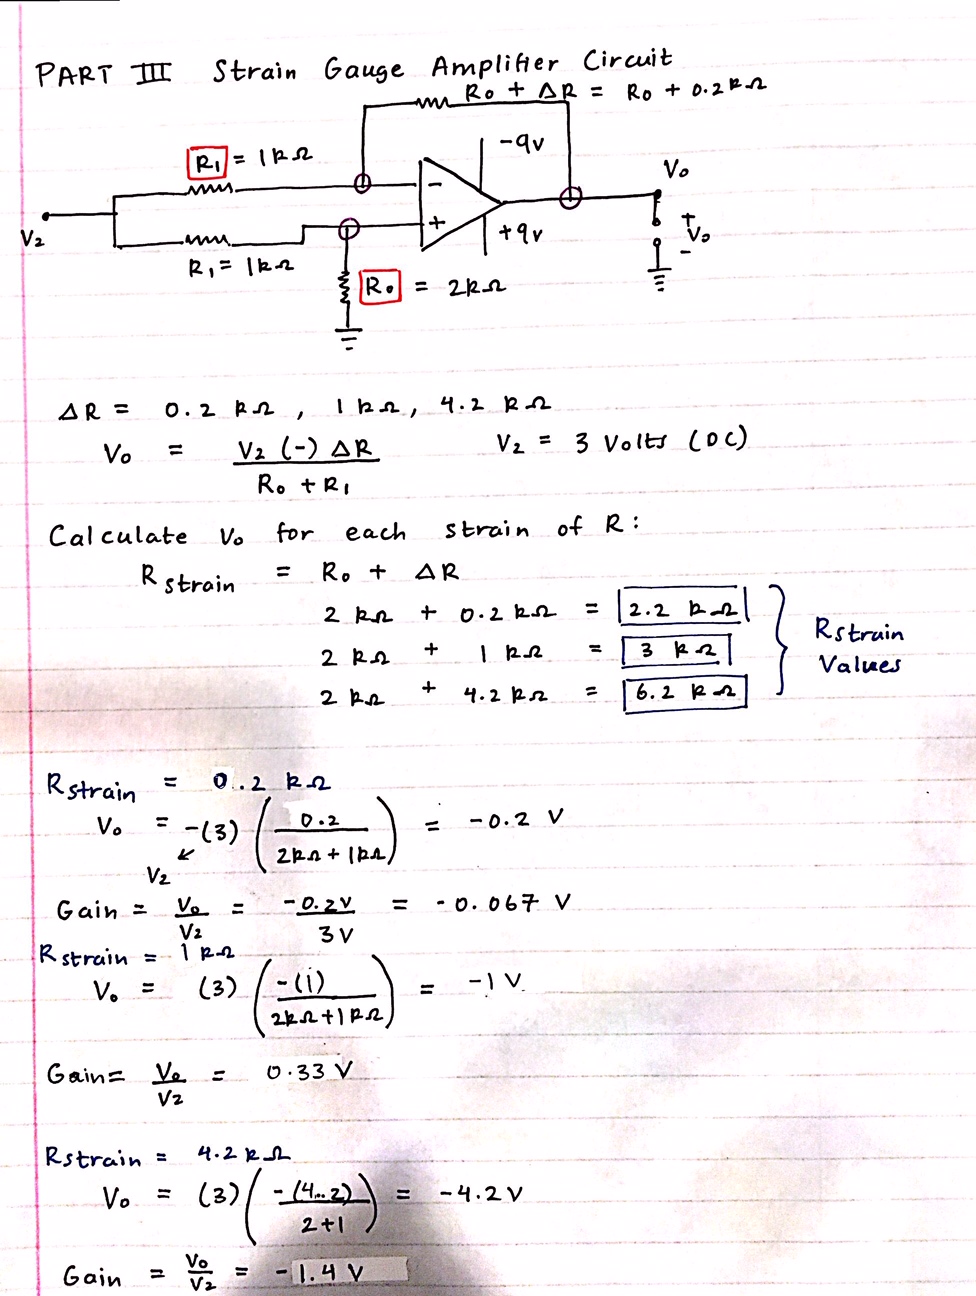 PART III Strain Gauge Amplifier Circuit
R₀ + ΔR = R₀ + 0.2 kΩ
R₁ = 1kΩ
-9v
V₀
V₂
+
+9v
+
V₀
-
R₁ = 1kΩ
R₀ = 2kΩ
ΔR = 0.2 kΩ, 1 kΩ, 4.2 kΩ
V₀ = V₂ (-) ΔR / R₀ + R₁
V₂ = 3 Volts (DC)
Calculate V₀ for each strain of R:
R strain = R₀ + ΔR
2 kΩ + 0.2 kΩ = 2.2 kΩ
2 kΩ + 1 kΩ = 3 kΩ
2 kΩ + 4.2 kΩ = 6.2 kΩ
Rstrain
Values
Rstrain = 0.2 kΩ
V₀ = -(3) ( 0.2 / 2kΩ + 1kΩ ) = -0.2 V
V₂
Gain = V₀/V₂ = -0.2V / 3V = -0.067 V
Rstrain = 1 kΩ
V₀ = (3) ( -(1) / 2kΩ+1kΩ ) = -1 V.
Gain= V₀/V₂ = 0.33 V
Rstrain = 4.2 kΩ
V₀ = (3) ( -(4.2) / 2+1 ) = -4.2 V
Gain = V₀/V₂ = -1.4 V